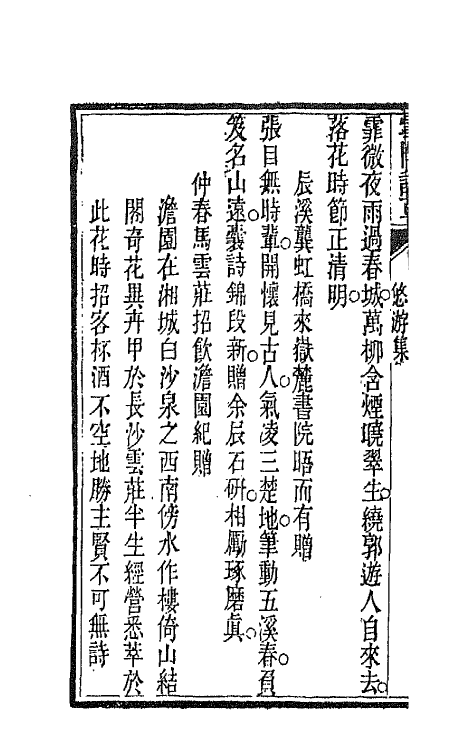 悠游集
霏微夜雨過春城。萬柳含煙曉翠生。繞郭遊人自來去。
落花時節正清明。
辰溪龔虹橋來嶽麓書院晤而有贈
張目無時輩。開懷見古人。氣凌三楚地。筆動五溪春。負
笈名山遠。囊詩錦段新。贈余辰石研。相勵琢磨眞。
仲春馬雲莊招飲澹園紀贈
澹園在湘城白沙泉之西南傍水作樓倚山結
閣奇花異卉甲於長沙雲莊半生經營悉萃於
此花時招客杯酒不空地勝主賢不可無詩